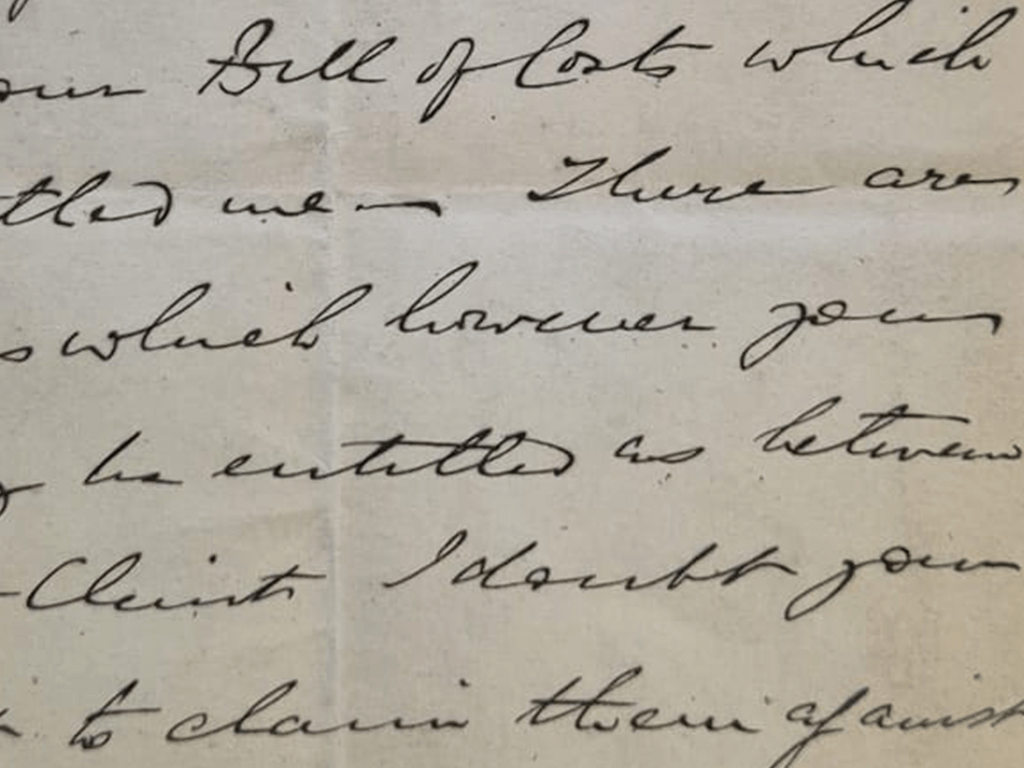 our Bill of Costs which
tled me — There are
s which however you
be entitled as between
Client I doubt you
to claim them against